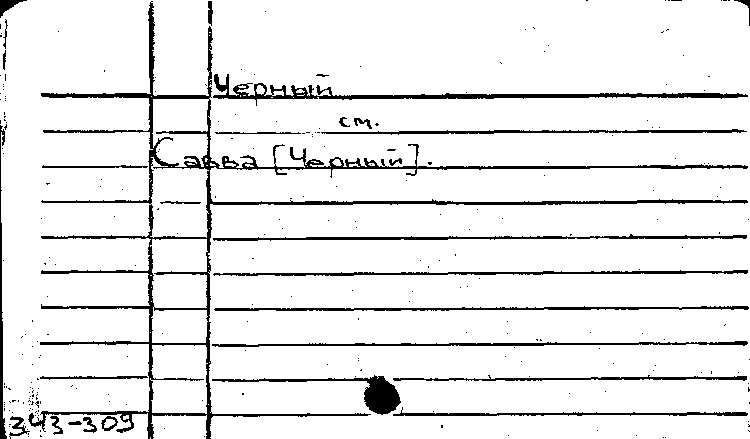 Черный
см.
Савва [Черный].
343-309